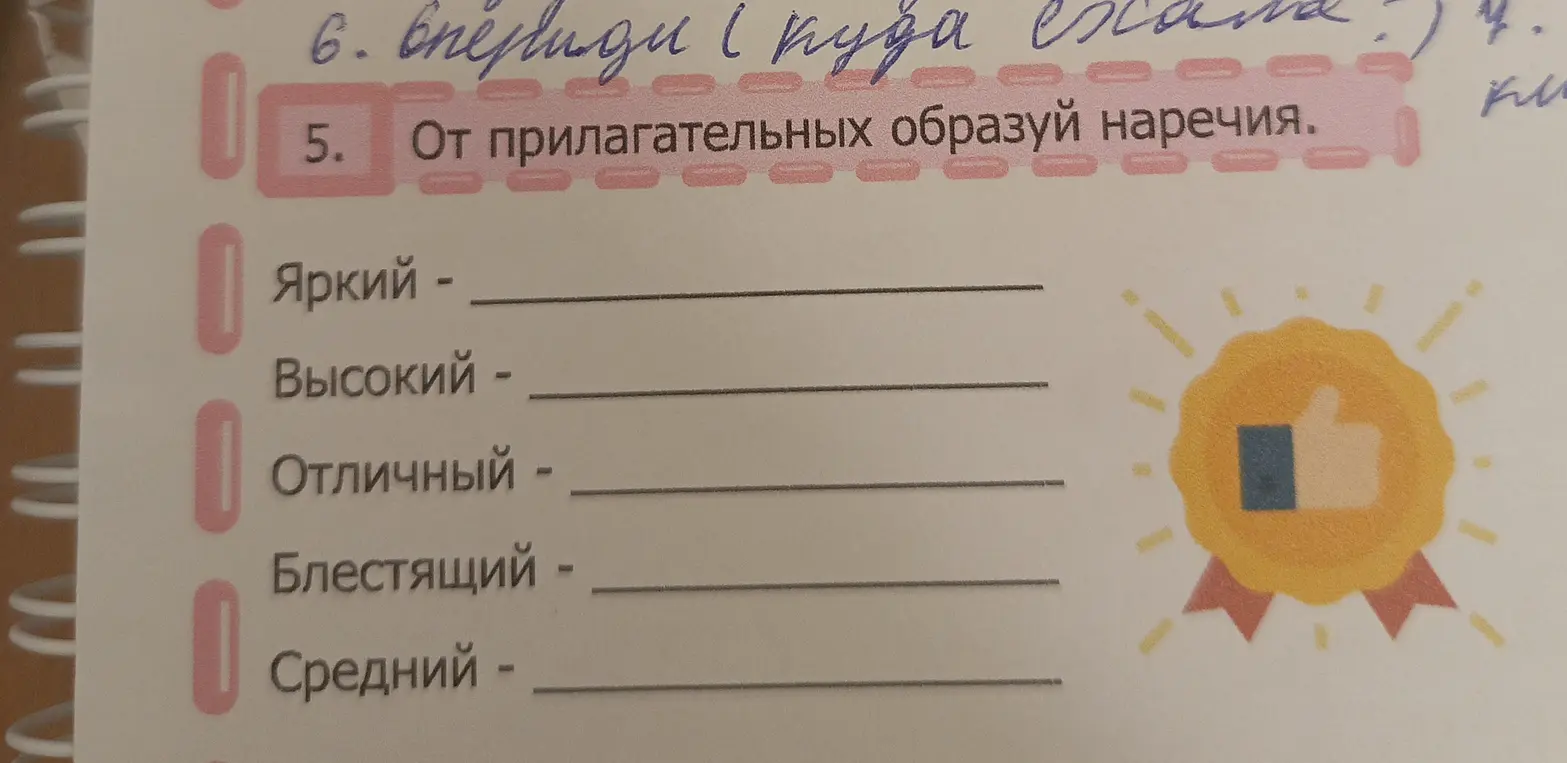 6. впереди ( куда ехала ? ) 4.
5. От прилагательных образуй наречия.
Яркий -
Высокий -
Отличный -
Блестящий -
Средний -